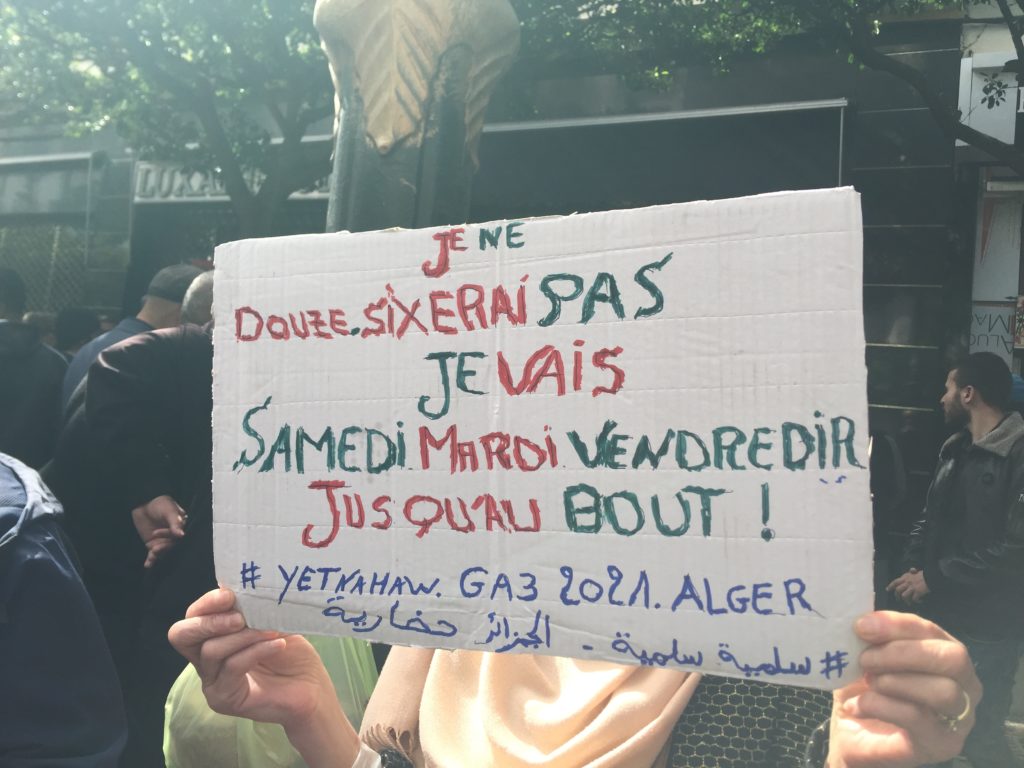 JE NE
DOUZE.SIXERAI PAS
JE VAIS
SAMEDI.MARDI.VENDREDIR
JUSQU'AU BOUT !
# YETNAHAW. GA3 2021. ALGER
#سلمية سلمية - الجزائر حضارية